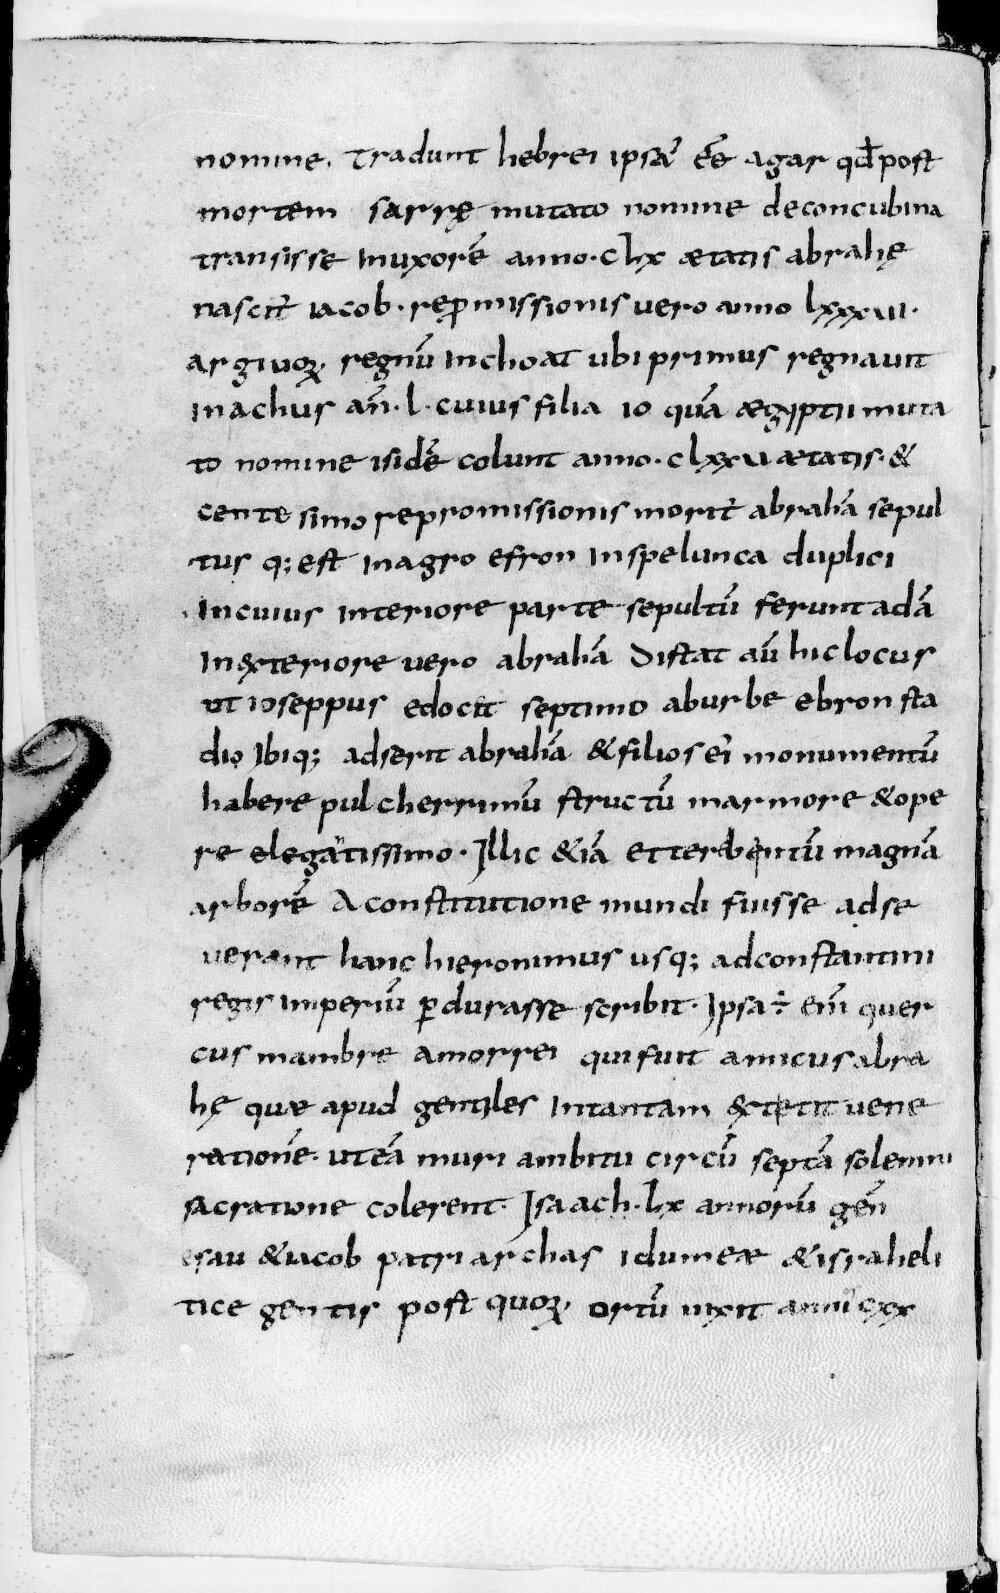 nomine. Tradunt hebrei ipsā eē̄ agar qđ post
mortem sarrę mutato nomine deconcubina
transisse inuxorē anno·clx ætatis abrahę
nascit̄ iacob·rep̱missionis vero anno lxxxui·
argiuoꝝ regnū inchoat ubi primus regnauit
inachus añ·l·cuius filia io quā ægyptii muta
to nomine isidē colunt anno·clxxu ætatis·&
centesimo repromissionis morit̄ abrahā sepul
tus q; est inagro efron inspelunca duplici
Incuius interiore parte sepultū ferunt adā
In&xteriore uero abrahā Distat aū hiclocus
ut ioseppus edocet septimo aburbe ebron sta
dio Ibiq; adserit abrahā &filios ei monumentū
habere pulcherrimū structū marmore &ope
re elegātissimo·Illic &iā et terebentū magnā
arborē Aconstitutione mundi fuisse adse
uerant hanc hieronimus usq; adconstantini
regis imperiū ꝑdurasse scribit·Ipsa ÷ eni᷈ quer
cus mambre amorrei qui fuit amicus abra
hę quæ apud gentiles Intantam &xtetit uene
rationē·uteā muri ambitu circū septā solemni
sacratione colerent·Isaach·lx annorū geñ
esau &iacob patriarchas idumeæ &israheli
tice gentis post quoꝝ ortū uixit anni cxx